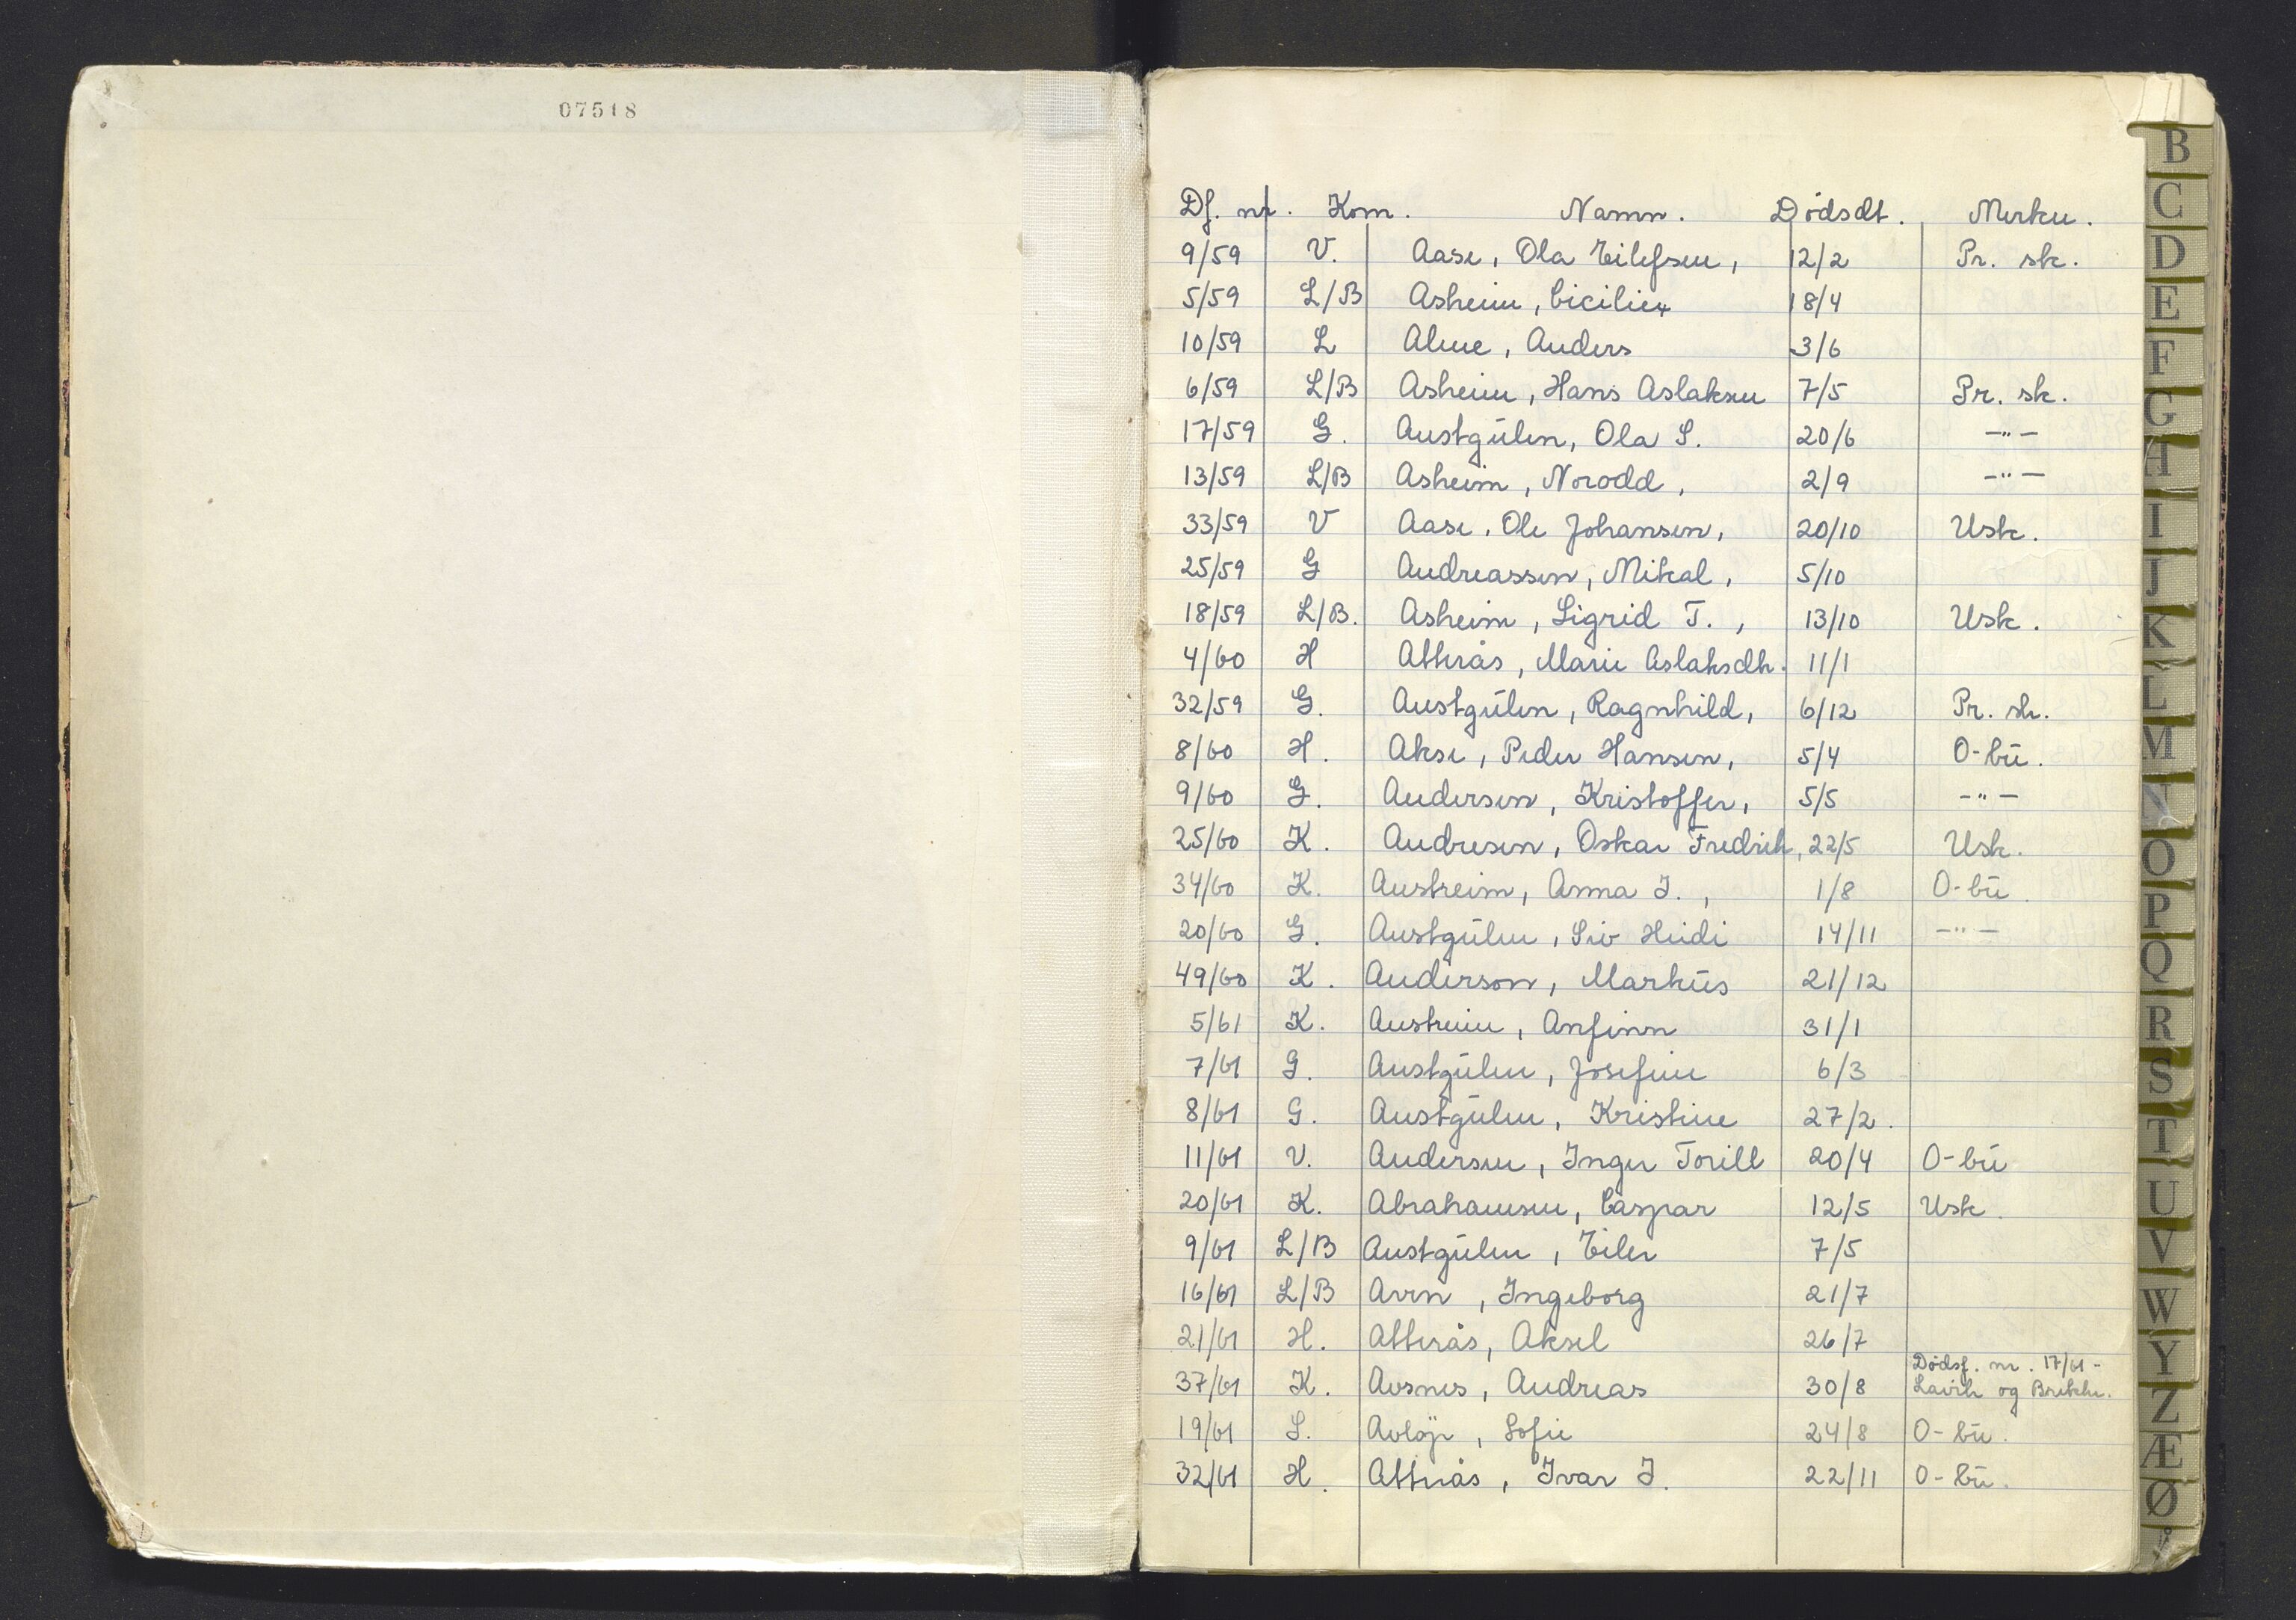 07518
Df. nr. Kom. Namn. Dødsdt. Merkn.
9/59 V. Aase, Ola Eilefsen, 12/2 Pr. sk.
5/59 L/B Asheim, Cicilie 18/4
10/59 L Alme, Anders 3/6
6/59 L/B Asheim, Hans Aslaksen 7/5 Pr. sk.
17/59 G. Austgulen, Ola S. 20/6 -"-
13/59 L/B Asheim, Norodd, 2/9 -"-
33/59 V Aase, Ole Johansen, 20/10 Usk.
25/59 G Andreassen, Mikal, 5/10
18/59 L/B. Asheim, Sigrid T., 13/10 Usk.
4/60 H Atterås, Marie Aslaksdtr. 11/1
32/59 G. Austgulen, Ragnhild, 6/12 Pr. sk.
8/60 H. Akse, Peder Hansen, 5/4 O-bu.
9/60 G. Andersen, Kristoffer, 5/5 -"-
25/60 K. Andresen, Oskar Fredrik, 22/5 Usk.
34/60 K. Austreim, Anna I., 1/8 O-bu.
20/60 G. Austgulen, Siv Heidi 14/11 -"-
49/60 K. Anderson, Markus 21/12
5/61 K. Austreim, Anfinn 31/1
7/61 G. Austgulen, Josefine 6/3
8/61 G. Austgulen, Kristine 27/2.
11/61 V. Andersen, Inger Torill 20/4 O-bu
20/61 K. Abrahamsen, Caspar 12/5 Usk.
9/61 L/B Austgulen, Eiler 7/5
16/61 L/B Aven, Ingeborg 21/7
21/61 H. Atterås, Aksel 26/7
Dødsf. nr. 17/61 -
37/61 K. Avsnes, Andreas 30/8 Lavik og Brekke.
19/61 S. Avløp, Sofie 24/8 O-bu.
32/61 H. Atterås, Ivar J. 22/11 O-bu.
B
C
D
E
F
G
H
I
J
K
L
M
N
O
P
Q
R
S
T
U
V
W
Y
Z
Æ
Ø
Å